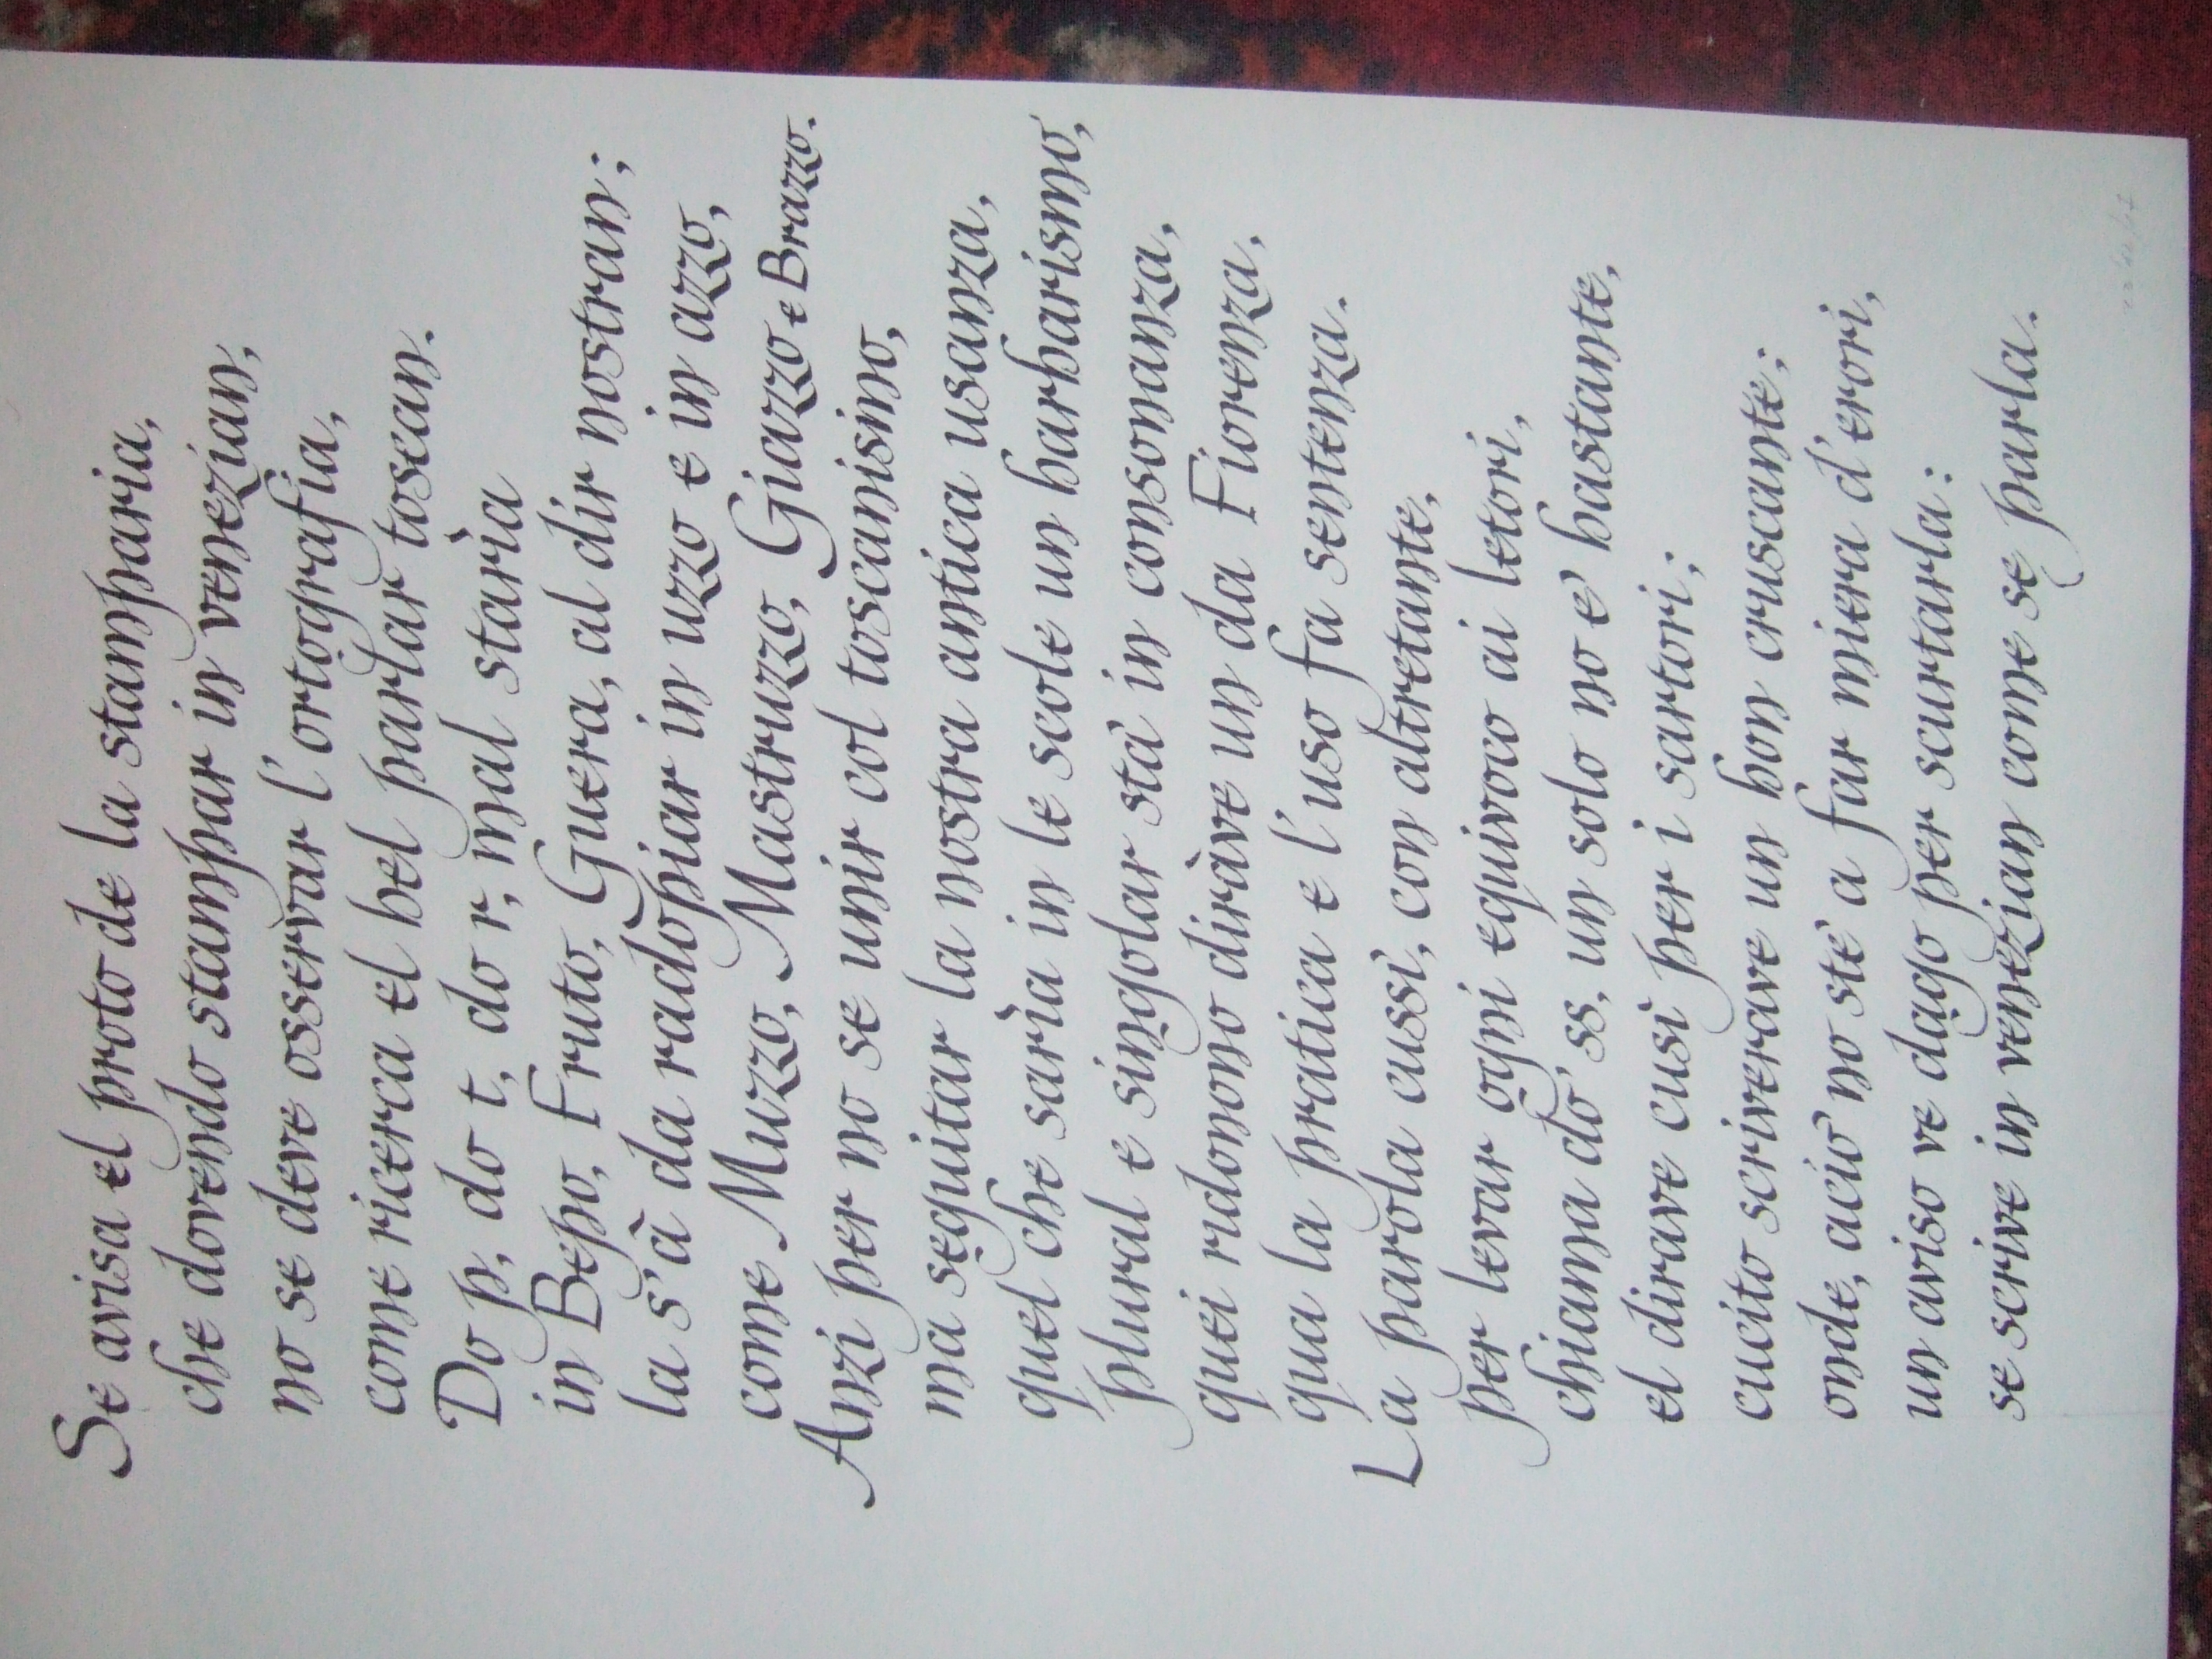 Se avisa el proto de la stamparia,
che dovendo stampar in venezian,
no se deve osservar l'ortografia,
come ricerca el bel parlar toscan.
Do p, do t, do r, mal starìa
in Bepo, Fruto, Guera, al dir nostran;
la s'à da radopiar in uzzo e in azzo,
come Muzzo, Mastruzzo, Giazzo e Brazzo.
Anzi per no se unir col toscanisimo,
ma seguitar la nostra antica usanza,
quel che sarìa in le scole un barbarismo,
plural e singolar stà in consonanza,
quei ridonono diràve un da Fiorenza,
qua la pratica e l'uso fa sentenza.
La parola cussì, con altretante,
per levar ogni equivoco ai letori,
chiama dò ss, un solo no e' bastante,
el dirave cusì per i sartori;
cucito scriverave un bon cruscante;
onde, aciò no stè a far miera d'erori,
un aviso ve dago per scurtarla:
se scrive in venezian come se parla.